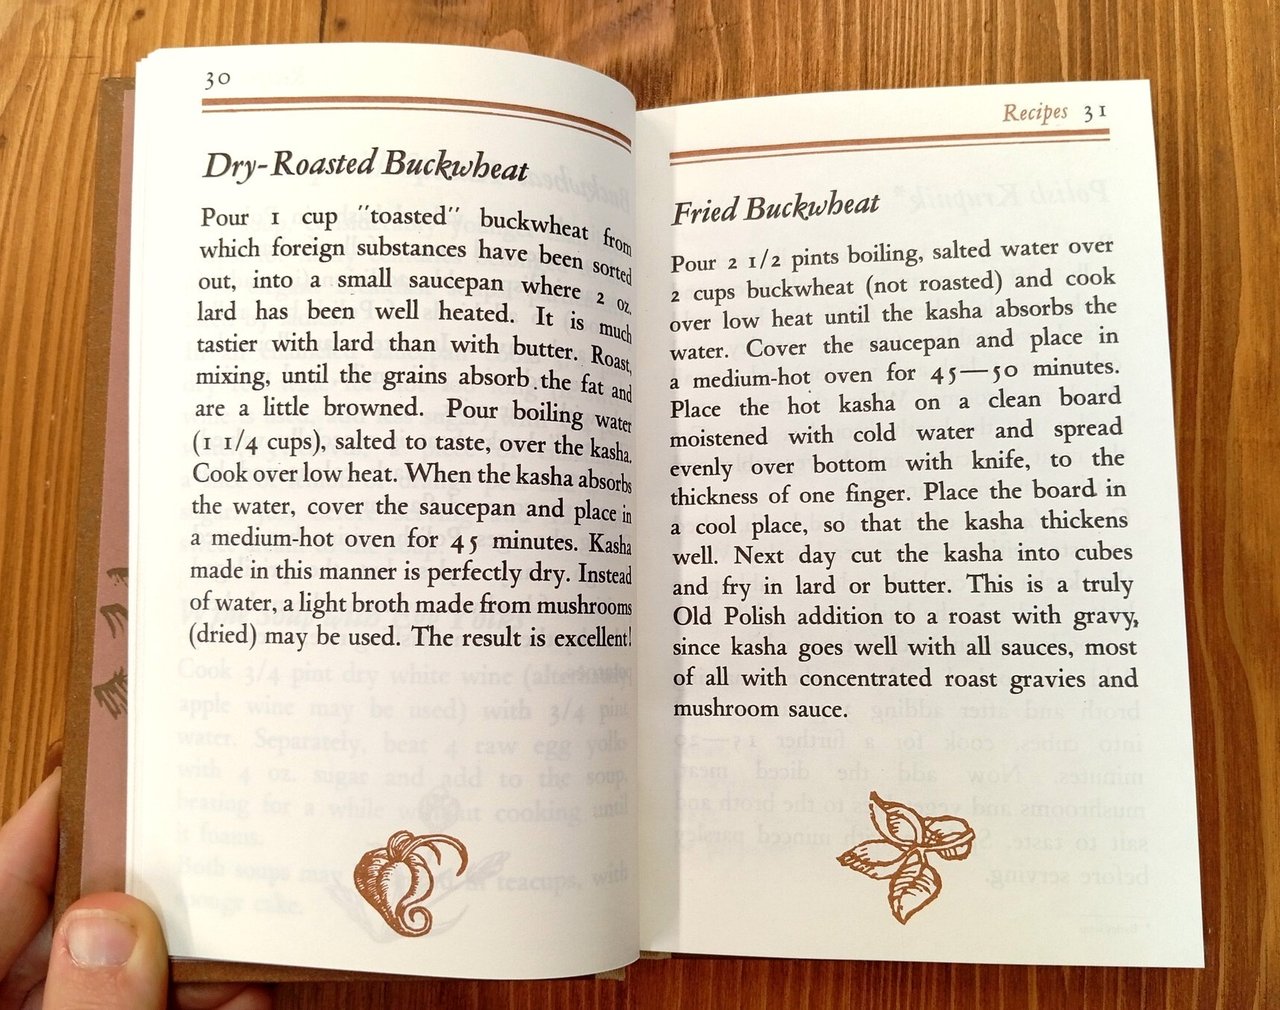 30
Dry-Roasted Buckwheat
Pour 1 cup "toasted" buckwheat from
which foreign substances have been sorted
out, into a small saucepan where 2 oz.
lard has been well heated. It is much
tastier with lard than with butter. Roast,
mixing, until the grains absorb the fat and
are a little browned. Pour boiling water
(1 1/4 cups), salted to taste, over the kasha.
Cook over low heat. When the kasha absorbs
the water, cover the saucepan and place in
a medium-hot oven for 45 minutes. Kasha
made in this manner is perfectly dry. Instead
of water, a light broth made from mushrooms
(dried) may be used. The result is excellent!
Cook 3/4 pint dry white wine
apple wine may be used) with 3/4 pint
water. Separately, beat 4 raw egg yolks
with 4 oz. sugar and add to the soup,
beating for a while without cooking until
it foams.
Both soups may in teacups, with
sponge cake.
Recipes 31
Fried Buckwheat
Pour 2 1/2 pints boiling, salted water over
2 cups buckwheat (not roasted) and cook
over low heat until the kasha absorbs the
water. Cover the saucepan and place in
a medium-hot oven for 45—50 minutes.
Place the hot kasha on a clean board
moistened with cold water and spread
evenly over bottom with knife, to the
thickness of one finger. Place the board in
a cool place, so that the kasha thickens
well. Next day cut the kasha into cubes
and fry in lard or butter. This is a truly
Old Polish addition to a roast with gravy,
since kasha goes well with all sauces, most
of all with concentrated roast gravies and
mushroom sauce.